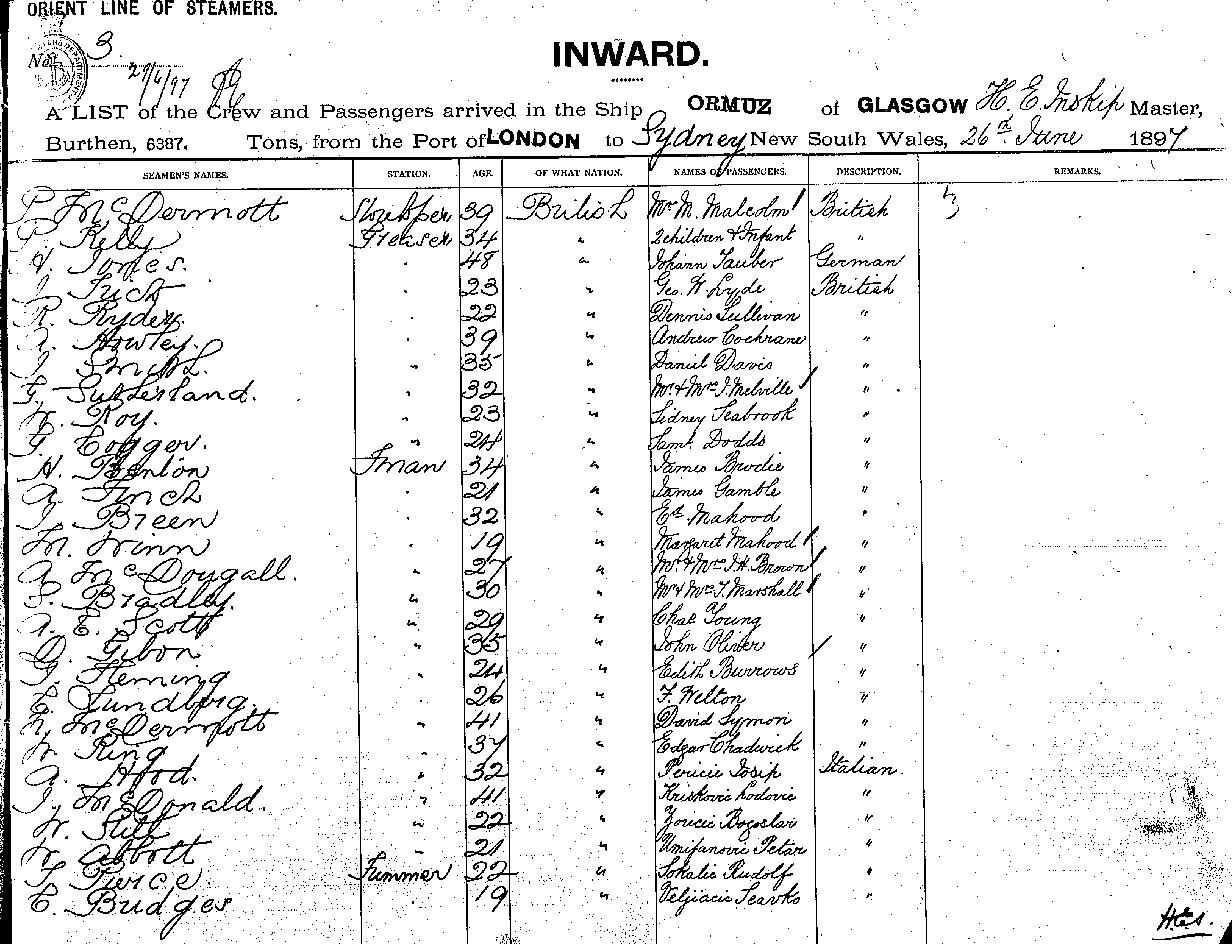 ORIENT LINE OF STEAMERS.
No. 3
29/6/97
INWARD.
A LIST of the Crew and Passengers arrived in the Ship ORMUZ of GLASGOW H. E. Inskip Master,
Burthen, 6387. Tons, from the Port of LONDON to Sydney New South Wales, 26th June 1897
SEAMEN'S NAMES. STATION. AGE. OF WHAT NATION. NAMES OF PASSENGERS. DESCRIPTION. REMARKS.
P. McDermott 39 British Mrs M. Malcolm British
P. Kelly Greaser 34 " 2 children & Infant "
Jones. " 48 " Johann Tauber German
" 23 " Geo. W. Lyde British
R. Ryder. " 22 " Dennis Sullivan "
Howley. " 39 " Andrew Cochrane "
J. Smith. " 35 " Daniel Davis "
G. Sutherland. " 32 " Mr & Mrs J. Melville "
Roy. " 23 " Sidney Seabrook "
" 24 " Saml. Dodds "
H. Benton Fman 34 " James Brodie "
A. Finch " 21 " James Gamble "
J. Breen " 32 " Ed. Mahood "
M. " 19 " Margaret Mahood "
A. McDougall. " 27 " Mr & Mrs J. H. Brown "
Bradley. " 30 " Mr & Mrs T. Marshall "
A. E. Scott " 29 " Chas. Young "
Gibon " 35 " John Oliver "
G. Fleming " 24 " Edith Burrows "
C. Lundberg. " 26 " F. Welton "
McDermott " 41 " David Symon "
W. King " 37 " Edgar Chadwick "
A. " 32 " Pericic Josip Italian
J. McDonald. " 41 " Kriskovic Lodovic "
W. Still " 22 " Bogoslav "
W. Abbott " 21 " Petar "
Pierce Trimmer 22 " Sokalic Rudolf "
C. Budges 19 "